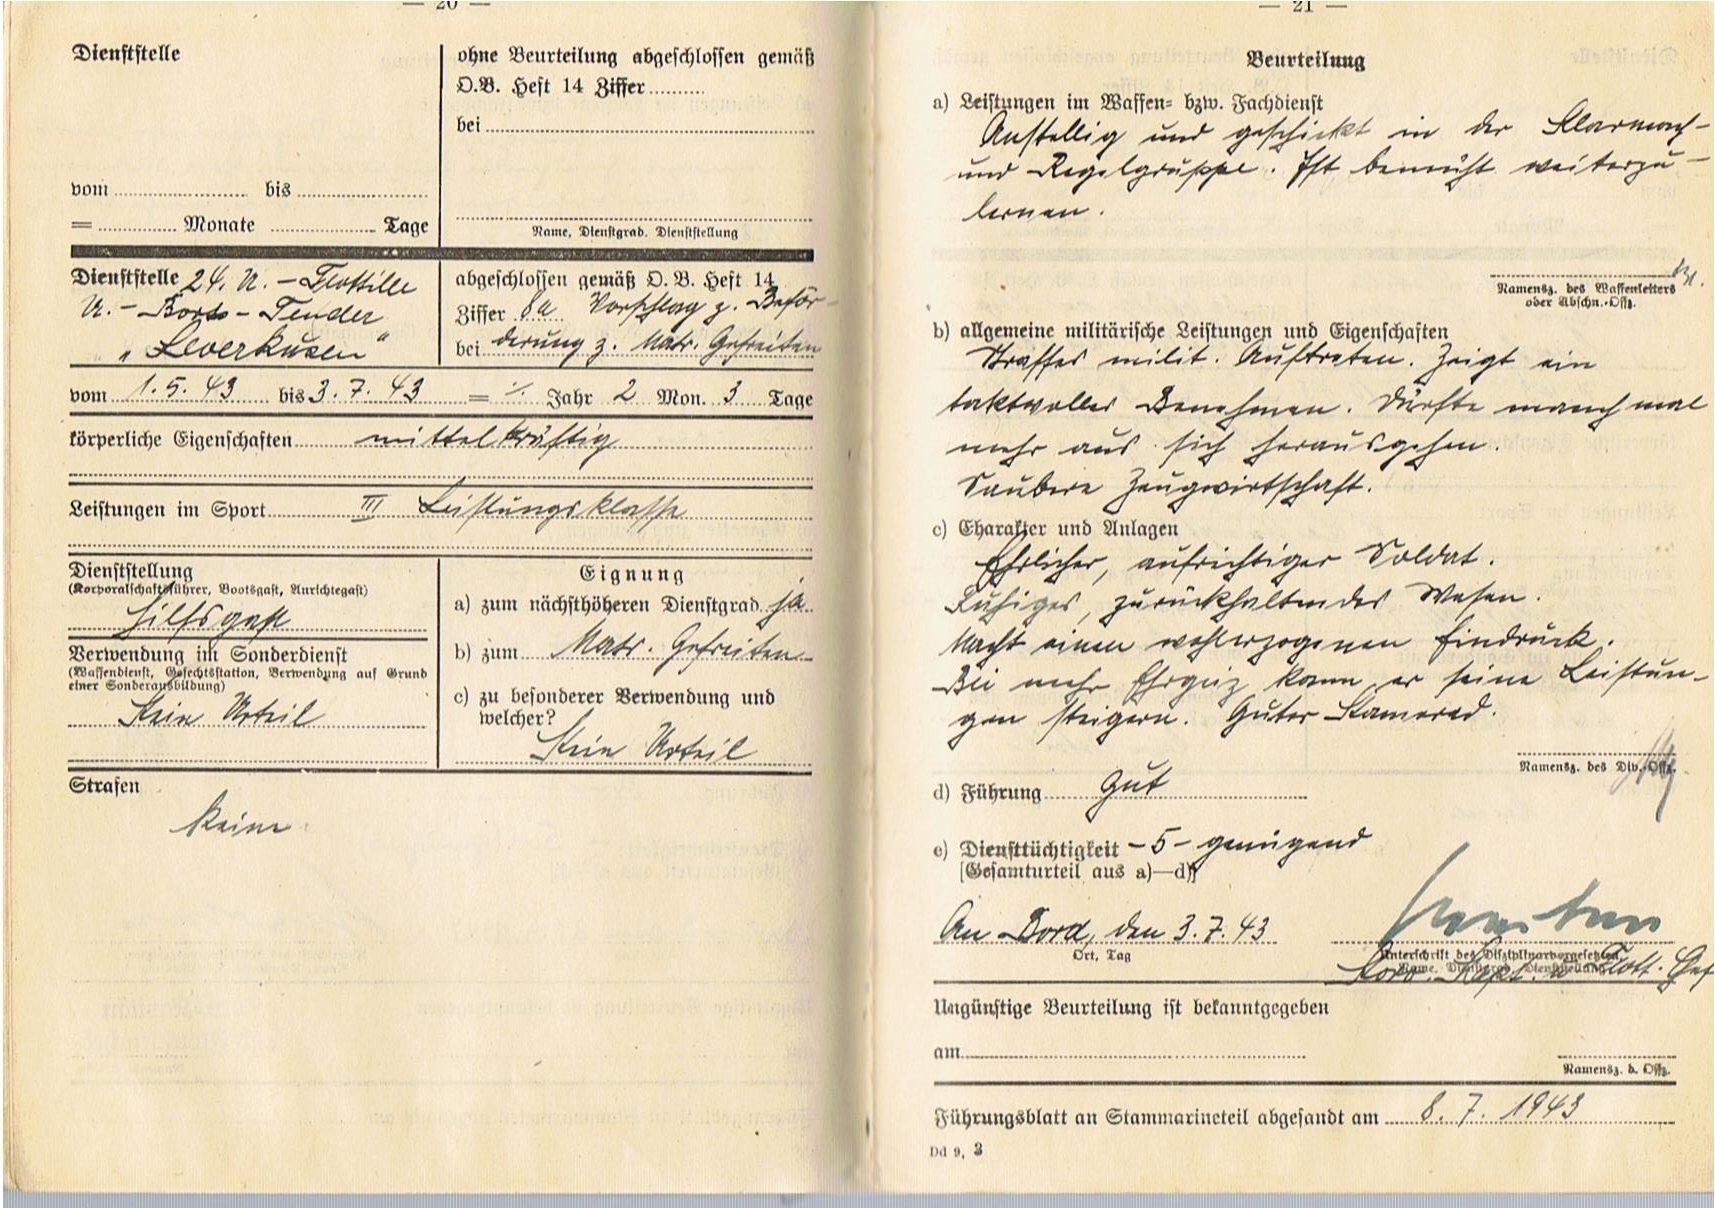 — 20 —
Dienststelle
ohne Beurteilung abgeschlossen gemäß
D.B. Heft 14 Ziffer
bei
vom bis
= Monate Tage
Name, Dienstgrad, Dienststellung
Dienststelle 24. U. - Flottille
U. - Boots - Tender
„Leverkusen“
abgeschlossen gemäß D. B. Heft 14
Ziffer 8a Vorschlag z. Beför-
bei derung z. Matr. Gefreiten
vom 1. 5. 43 bis 3. 7. 43 = ·/. Jahr 2 Mon. 3 Tage
körperliche Eigenschaften mittelkräftig
Leistungen im Sport III Leistungsklasse
Dienststellung
(Korporalschaftsführer, Bootsgast, Anrichtegast)
Hilfsgast
Verwendung im Sonderdienst
(Waffendienst, Gefechtsstation, Verwendung auf Grund
einer Sonderausbildung)
Kein Urteil
Eignung
a) zum nächsthöheren Dienstgrad ja
b) zum Matr. Gefreiten
c) zu besonderer Verwendung und
welcher?
Kein Urteil
Strafen
keine
— 21 —
Beurteilung
a) Leistungen im Waffen- bzw. Fachdienst
Anstellig und geschickt in der Klarmach-
und Regelgruppe. Ist bemüht weiterzu-
lernen.
Namensz. des Waffenleiters
oder Abschn.-Offz.
b) allgemeine militärische Leistungen und Eigenschaften
Straffes milit. Auftreten. Zeigt ein
taktvolles Benehmen. Dürfte manchmal
mehr aus sich herausgehen.
Saubere Zeugwirtschaft.
c) Charakter und Anlagen
Ehrlicher, aufrichtiger Soldat.
Ruhiges, zurückhaltendes Wesen.
Macht einen wohlerzogenen Eindruck.
Bei mehr Ehrgeiz kann er seine Leistun-
gen steigern. Guter Kamerad.
Namensz. des Div.-Offz.
d) Führung Gut
e) Diensttüchtigkeit - 5 - genügend
[Gesamturteil aus a)—d)]
An Bord, den 3. 7. 43
Ort, Tag
Unterschrift des Disziplinarvorgesetzten
Name, Dienstgrad, Dienststellung
Korv. Kapt. u. Flott. Chef
Ungünstige Beurteilung ist bekanntgegeben
am
Namensz. d. Offz.
Führungsblatt an Stammarineteil abgesandt am 8. 7. 1943
Dd 9, 3